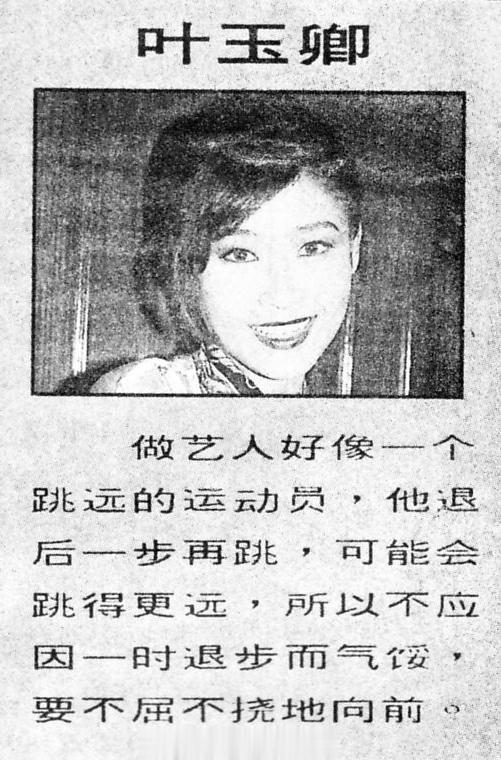 叶玉卿
做艺人好像一个
跳远的运动员，他退
后一步再跳，可能会
跳得更远，所以不应
因一时退步而气馁，
要不屈不挠地向前。